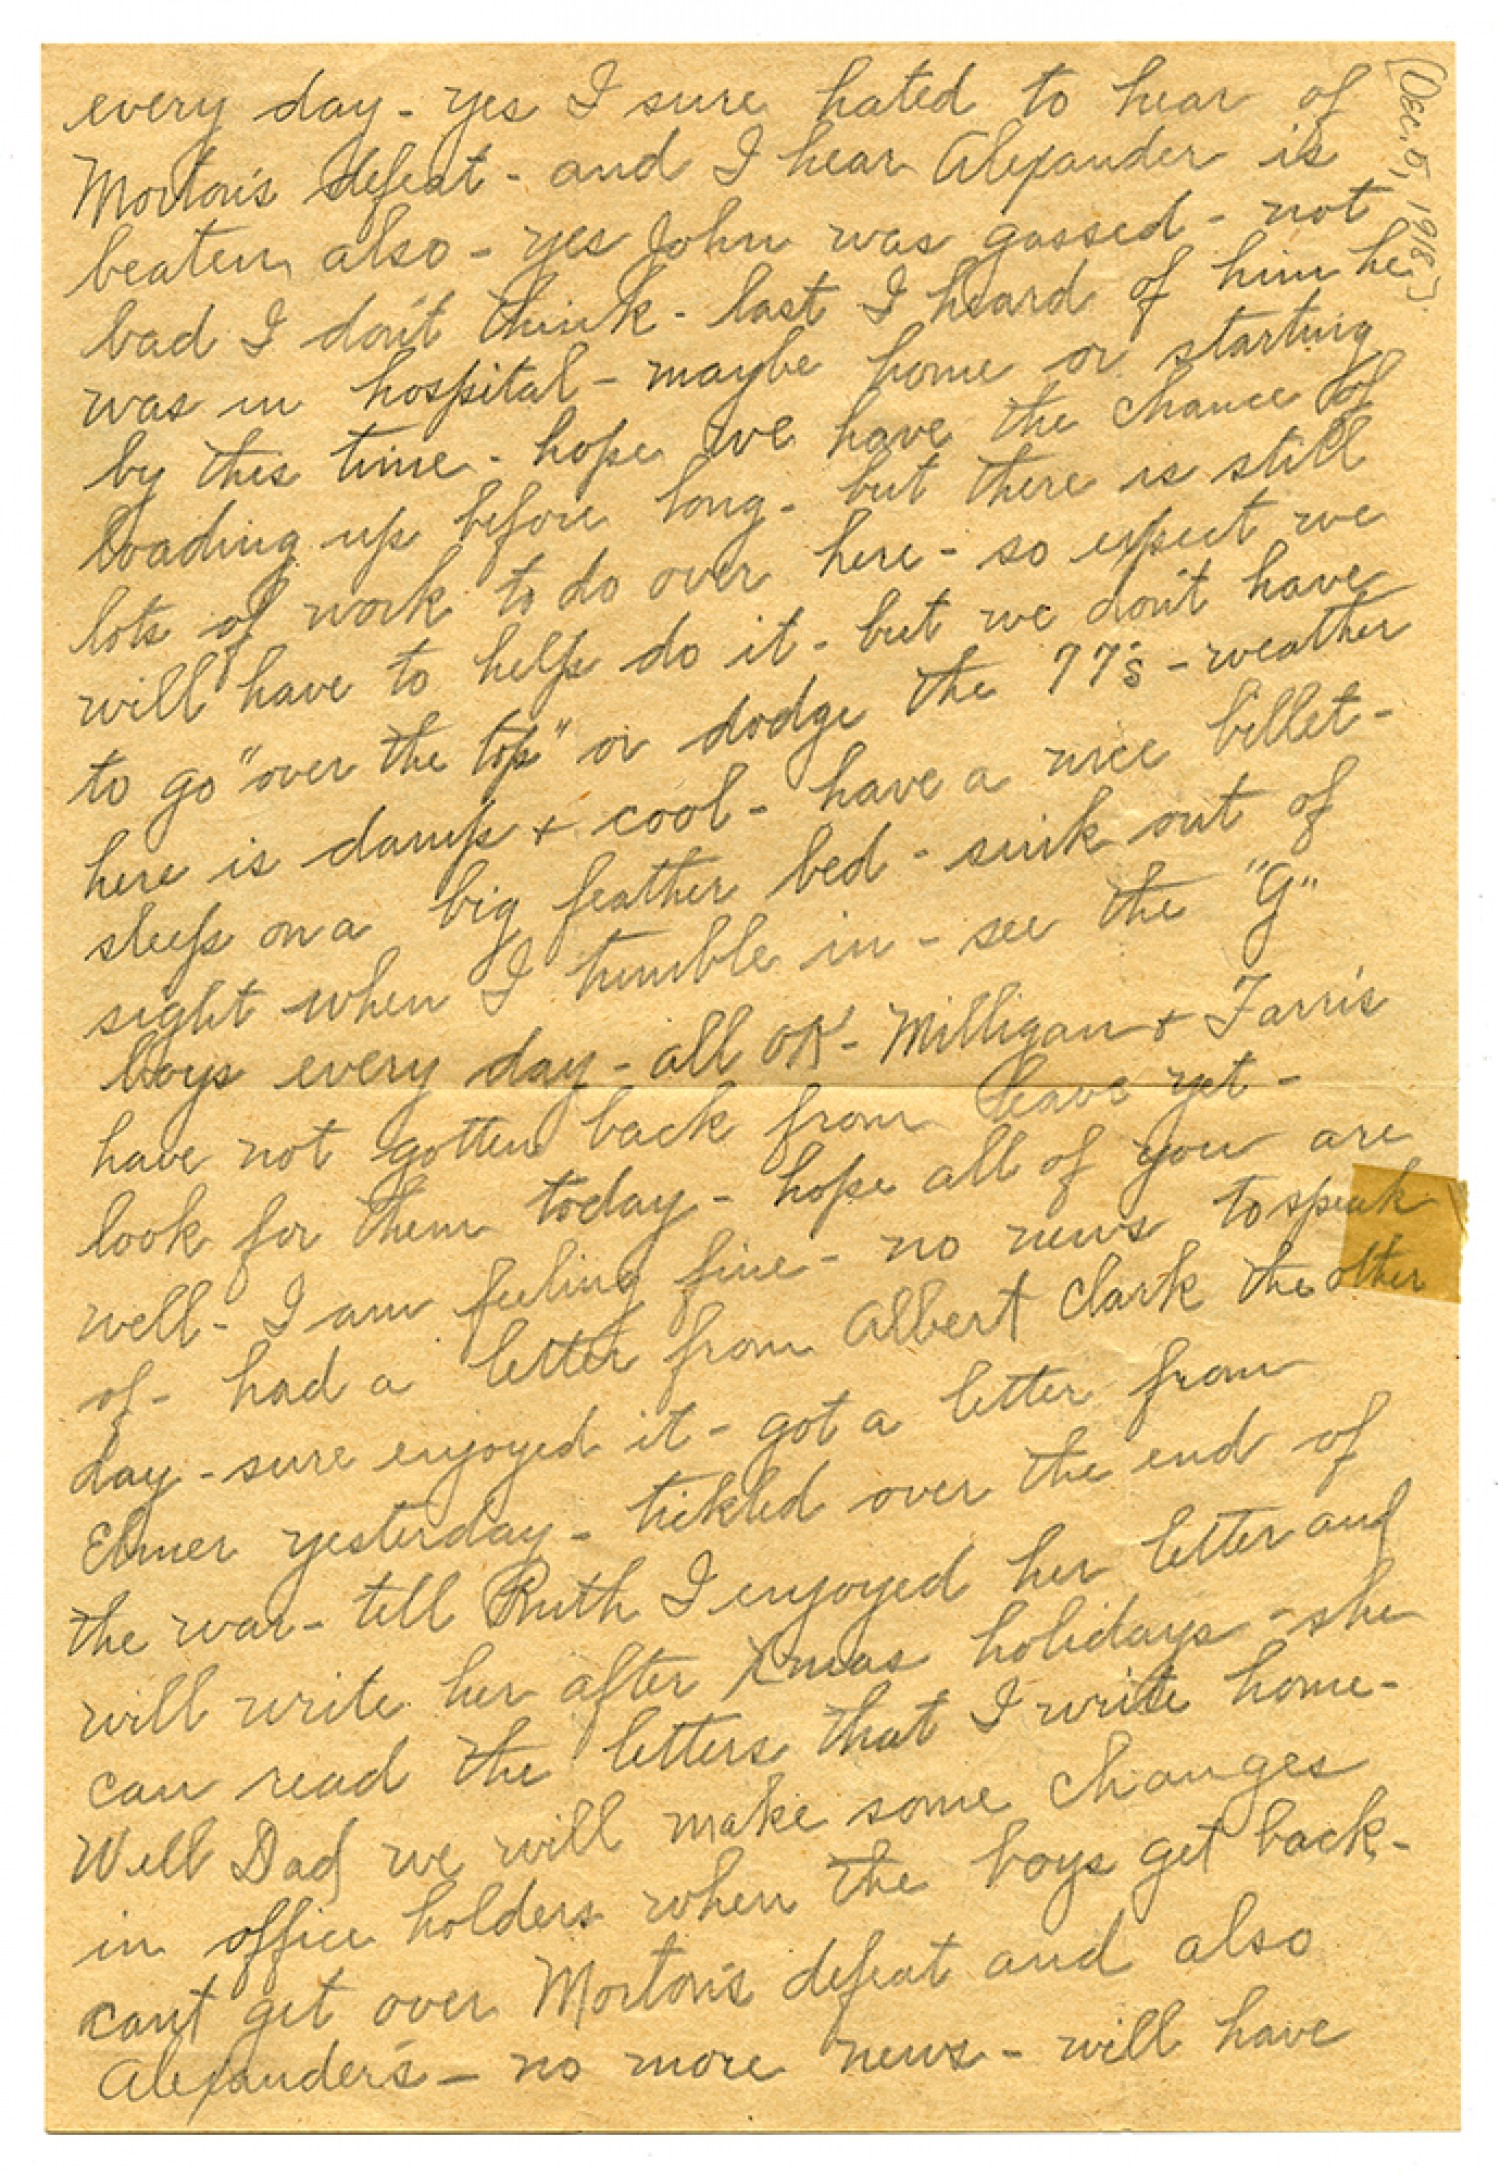 (Dec. 5, 1918)
every day - yes I sure hated to hear of
Morton's defeat - and I hear Alexander is
beaten also - yes John was gassed - not
bad I don't think - last I heard of him he
was in hospital - maybe home or starting
by this time - hope we have the chance of
loading up before long - but there is still
lots of work to do over here - so expect we
will have to help do it - but we don't have
to go "over the top" or dodge the 77's - weather
here is damp + cool - have a nice billet -
sleep on a big feather bed - sink out of
sight when I tumble in - see the "G"
boys every day - all OK - Milligan + Farris
have not gotten back from leave yet -
look for them today - hope all of you are
well - I am feeling fine - no news to speak
of - had a letter from Albert Clark the other
day - sure enjoyed it - got a letter from
Elmer yesterday - tickled over the end of
the war - tell Ruth I enjoyed her letter and
will write her after Xmas holidays - she
can read the letters that I write home -
Well Dad we will make some changes
in office holders when the boys get back -
cant get over Morton's defeat and also
Alexander's - no more news - will have